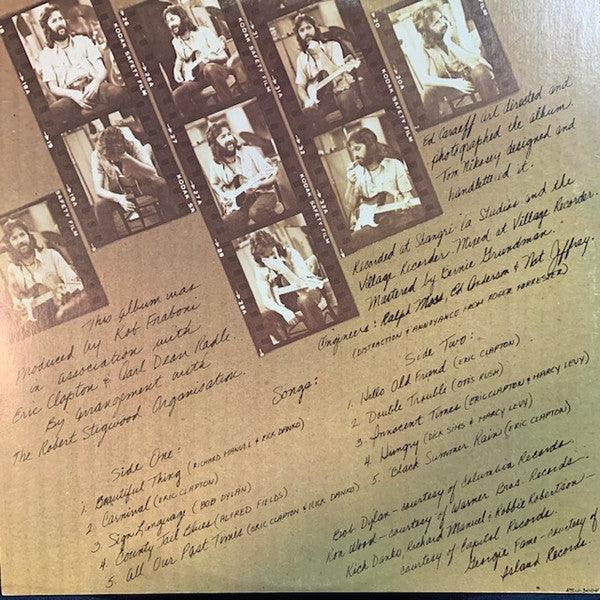 KODAK SAFETY FILM
KODAK SAFETY FILM
KODAK SAFETY FILM
KODAK SAFETY FILM
Ed Caraeff art directed and
photographed the album.
Tom Nikosey designed and
handlettered it.
Recorded at Shangri-la Studios and the
Village Recorder. Mixed at Village Recorder.
Mastered by Bernie Grundman.
Engineers: Ralph Moss, Ed Anderson & Nat Jeffrey.
(DISTRACTION & ANNOYANCE FROM ROGER FORRESTER)
This album was
Produced by Rob Fraboni
in association with
Eric Clapton & Carl Dean Radle.
By arrangement with
The Robert Stigwood Organisation.
Songs:
Side One:
1. Beautiful Thing (RICHARD MANUEL & RICK DANKO)
2. Carnival (ERIC CLAPTON)
3. Sign Language (BOB DYLAN)
4. County Jail Blues (ALFRED FIELDS)
5. All Our Past Times (ERIC CLAPTON & RICK DANKO)
Side Two:
1. Hello Old Friend (ERIC CLAPTON)
2. Double Trouble (OTIS RUSH)
3. Innocent Times (ERIC CLAPTON & MARCY LEVY)
4. Hungry (DICK SIMS & MARCY LEVY)
5. Black Summer Rain (ERIC CLAPTON)
Bob Dylan - courtesy of Columbia Records.
Ron Wood - courtesy of Warner Bros. Records.
Rick Danko, Richard Manuel & Robbie Robertson -
courtesy of Capitol Records.
Georgie Fame - courtesy of
Island Records.